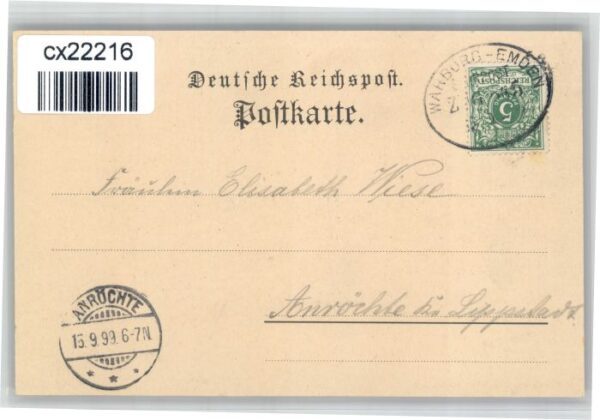 cx22216
Deutsche Reichspost.
Postkarte.
WARBURG-EMDEN
5
Fräulein Elisabeth Wiese
Anröchte Kr. Lippstadt
ANRÖCHTE
15.9.99.6-7N.